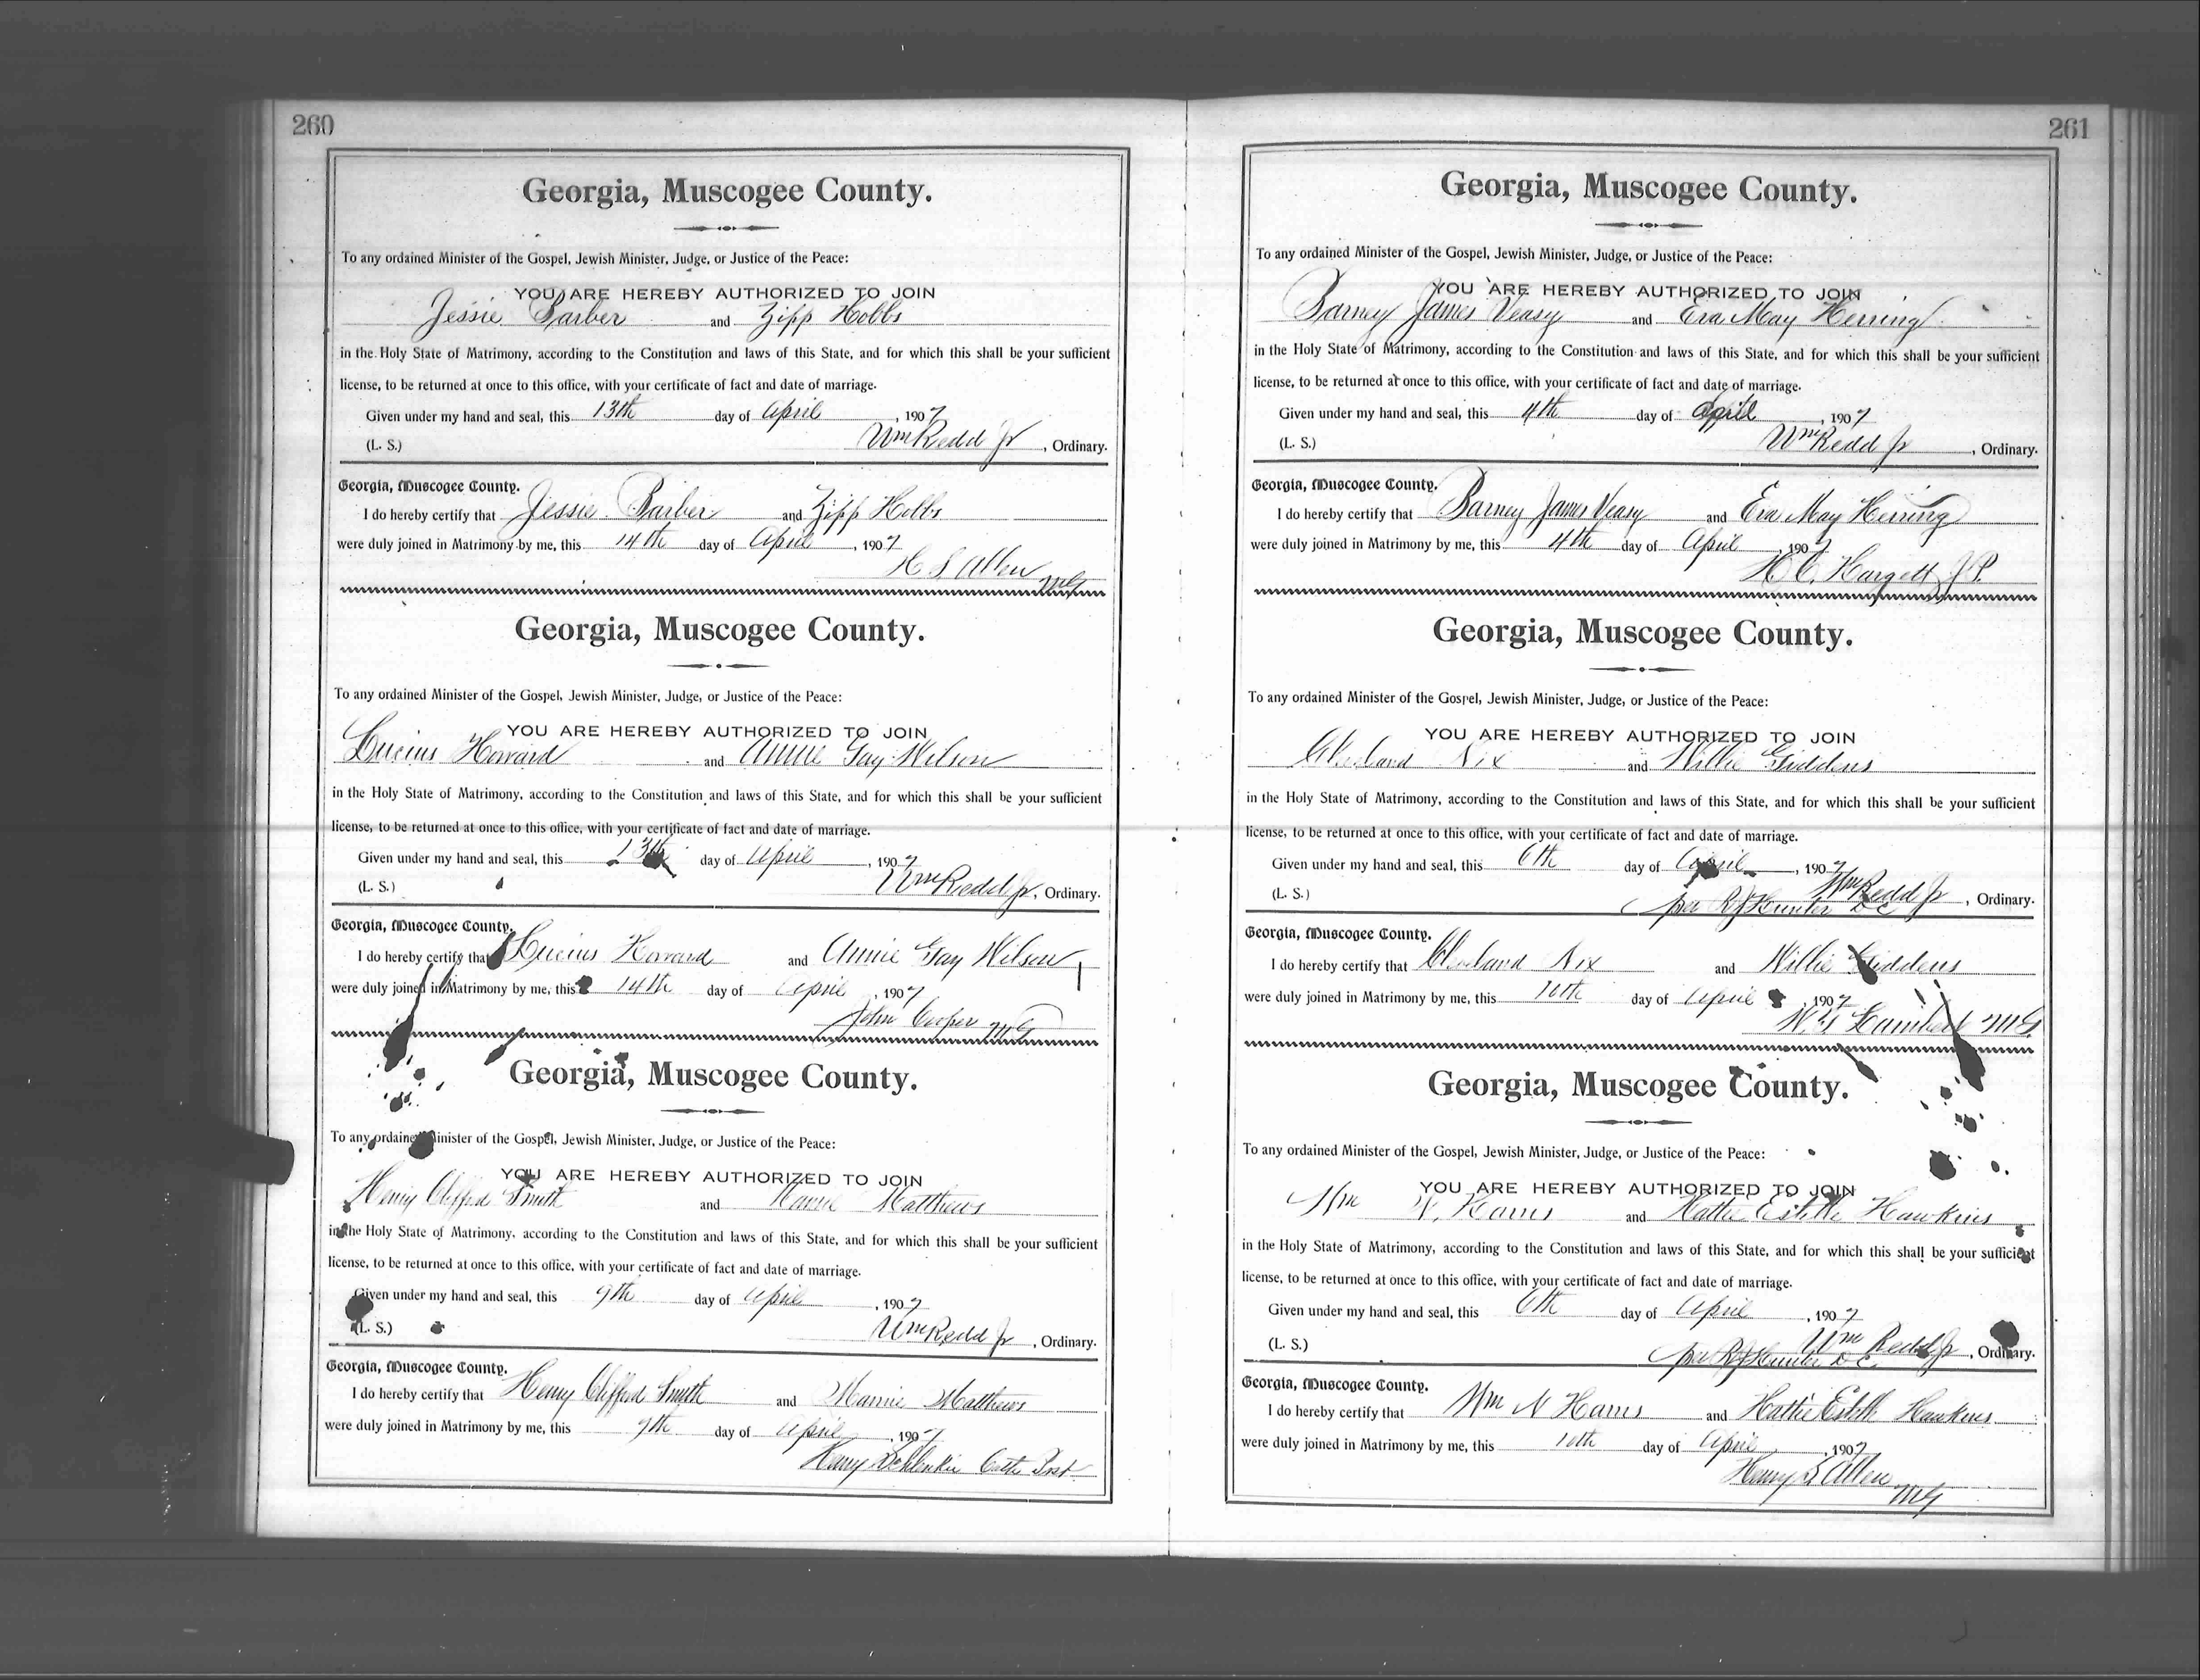 260
Georgia, Muscogee County.
To any ordained Minister of the Gospel, Jewish Minister, Judge, or Justice of the Peace:
YOU ARE HEREBY AUTHORIZED TO JOIN
Jessie Barber and Zipp Hobbs
in the Holy State of Matrimony, according to the Constitution and laws of this State, and for which this shall be your sufficient
license, to be returned at once to this office, with your certificate of fact and date of marriage.
Given under my hand and seal, this 13th day of April, 1907
(L. S.) Wm Redd Jr, Ordinary.
Georgia, Muscogee County.
I do hereby certify that Jessie Barber and Zipp Hobbs
were duly joined in Matrimony by me, this 14th day of April, 1907
H S Allen MG
Georgia, Muscogee County.
To any ordained Minister of the Gospel, Jewish Minister, Judge, or Justice of the Peace:
YOU ARE HEREBY AUTHORIZED TO JOIN
Lucius Howard and Annie Gay Wilson
in the Holy State of Matrimony, according to the Constitution and laws of this State, and for which this shall be your sufficient
license, to be returned at once to this office, with your certificate of fact and date of marriage.
Given under my hand and seal, this 13th day of April, 1907
(L. S.) Wm Redd Jr, Ordinary.
Georgia, Muscogee County.
I do hereby certify that Lucius Howard and Annie Gay Wilson
were duly joined in Matrimony by me, this 14th day of April, 1907
John Cooper MG
Georgia, Muscogee County.
To any ordained Minister of the Gospel, Jewish Minister, Judge, or Justice of the Peace:
YOU ARE HEREBY AUTHORIZED TO JOIN
Henry Clifford Smith and Mamie Matthews
in the Holy State of Matrimony, according to the Constitution and laws of this State, and for which this shall be your sufficient
license, to be returned at once to this office, with your certificate of fact and date of marriage.
Given under my hand and seal, this 9th day of April, 1907
(L. S.) Wm Redd Jr, Ordinary.
Georgia, Muscogee County.
I do hereby certify that Henry Clifford Smith and Mamie Matthews
were duly joined in Matrimony by me, this 9th day of April, 1907
Henry
261
Georgia, Muscogee County.
To any ordained Minister of the Gospel, Jewish Minister, Judge, or Justice of the Peace:
YOU ARE HEREBY AUTHORIZED TO JOIN
Barney James Veasy and Eva May Herring
in the Holy State of Matrimony, according to the Constitution and laws of this State, and for which this shall be your sufficient
license, to be returned at once to this office, with your certificate of fact and date of marriage.
Given under my hand and seal, this 4th day of April, 1907
(L. S.) Wm Redd Jr, Ordinary.
Georgia, Muscogee County.
I do hereby certify that Barney James Veasy and Eva May Herring
were duly joined in Matrimony by me, this 4th day of April, 1907
H C Hargett J P.
Georgia, Muscogee County.
To any ordained Minister of the Gospel, Jewish Minister, Judge, or Justice of the Peace:
YOU ARE HEREBY AUTHORIZED TO JOIN
Cleveland Nix and Willie Giddens
in the Holy State of Matrimony, according to the Constitution and laws of this State, and for which this shall be your sufficient
license, to be returned at once to this office, with your certificate of fact and date of marriage.
Given under my hand and seal, this 6th day of April, 1907
(L. S.) Wm Redd Jr, Ordinary.
per R J Hunter D C
Georgia, Muscogee County.
I do hereby certify that Cleveland Nix and Willie Giddens
were duly joined in Matrimony by me, this 10th day of April, 1907
Lambert MG
Georgia, Muscogee County.
To any ordained Minister of the Gospel, Jewish Minister, Judge, or Justice of the Peace:
YOU ARE HEREBY AUTHORIZED TO JOIN
Wm N. Harris and Hattie Estelle Hawkins
in the Holy State of Matrimony, according to the Constitution and laws of this State, and for which this shall be your sufficient
license, to be returned at once to this office, with your certificate of fact and date of marriage.
Given under my hand and seal, this 6th day of April, 1907
(L. S.) Wm Redd Jr, Ordinary.
per R J Hunter D C.
Georgia, Muscogee County.
I do hereby certify that Wm N Harris and Hattie Estelle Hawkins
were duly joined in Matrimony by me, this 10th day of April, 1907
Henry S Allen
MG